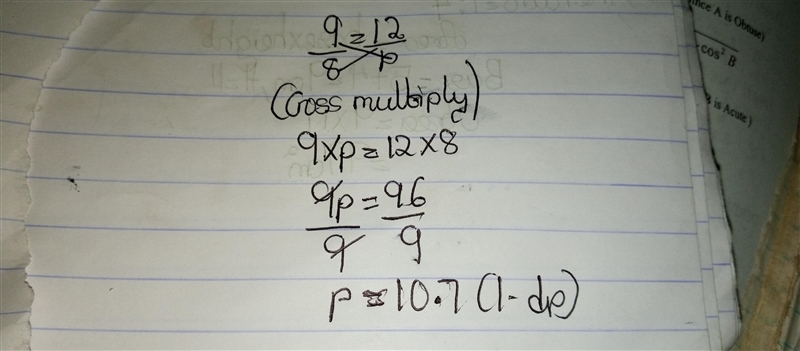 9/8 = 12/p
(Cross multiply)
9×p = 12×8
9p/9 = 96/9
p = 10.7 (1-dp)
nce A is Obtuse)
cos² B
B is Acute)